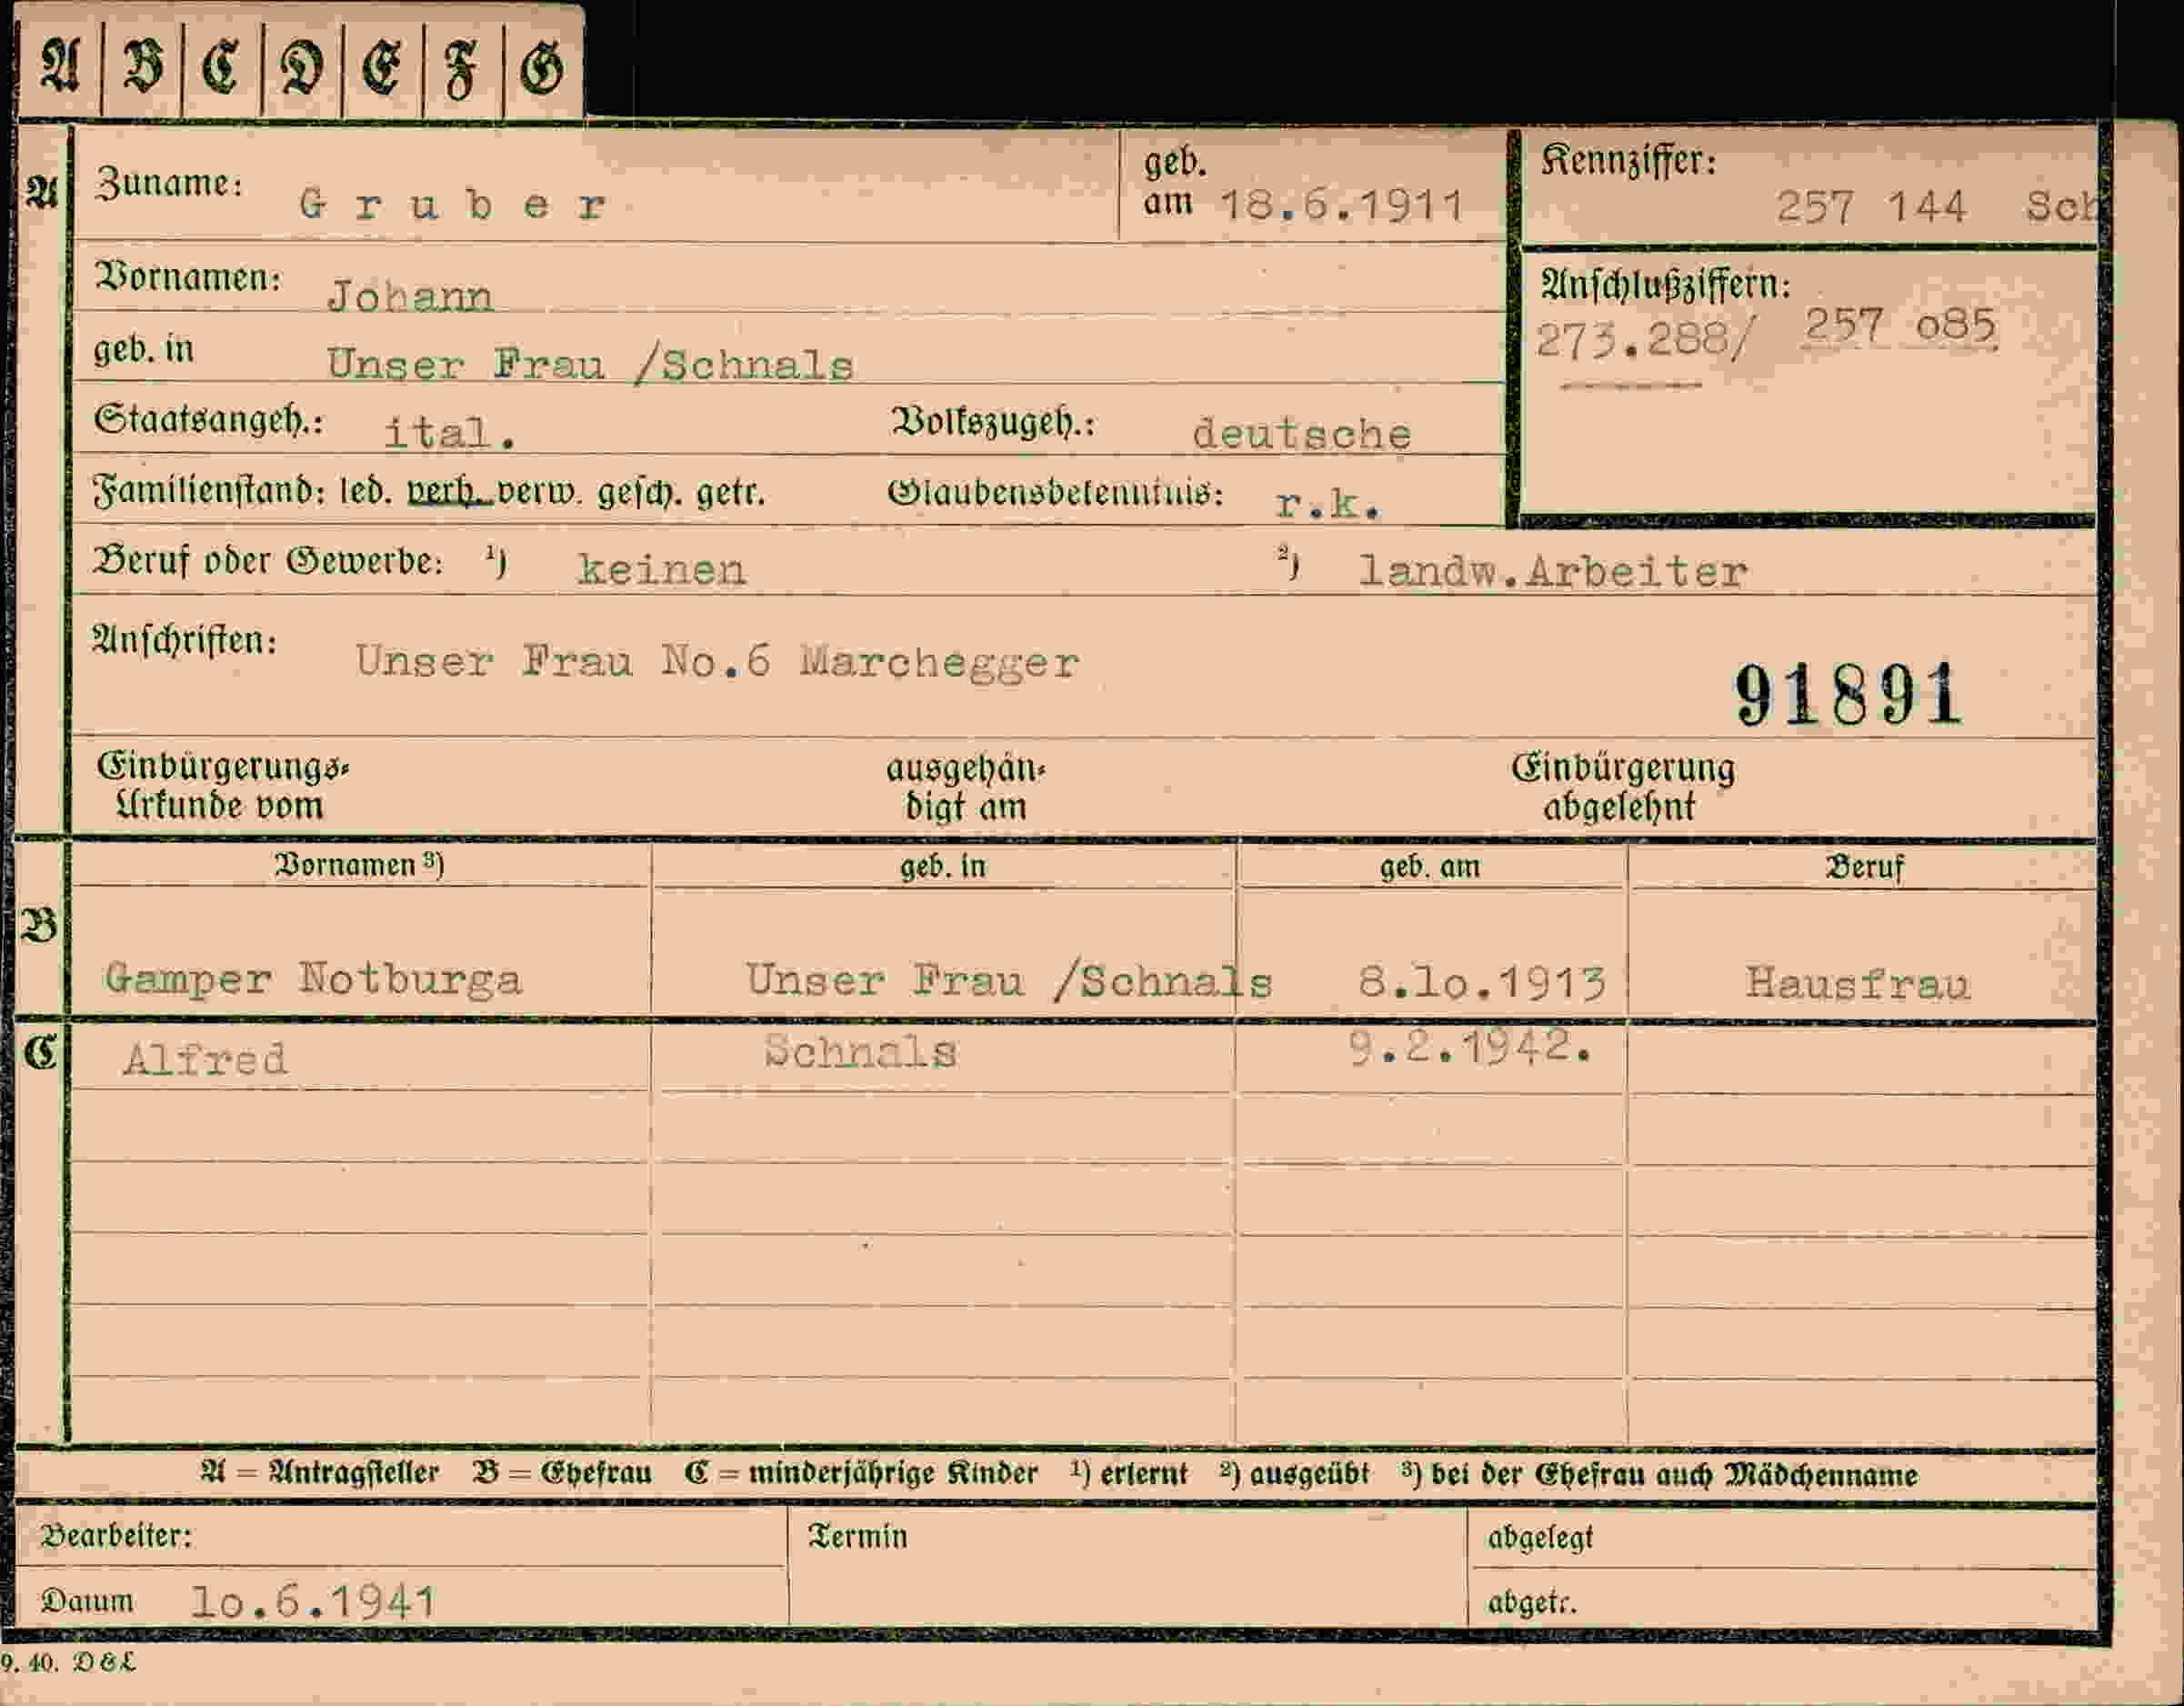 A B C D E F G
A Zuname: Gruber geb. am 18.6.1911 Kennziffer: 257 144 Sch
Vornamen: Johann
Anschlußziffern: 273.288/ 257 o85
geb. in Unser Frau /Schnals
Staatsangeh.: ital. Volkszugeh.: deutsche
Familienstand: led. verh. verw. gesch. getr. Glaubensbekenntnis: r.k.
Beruf oder Gewerbe: ¹) keinen ²) landw.Arbeiter
Anschriften: Unser Frau No.6 Marchegger
91891
Einbürgerungs-
Urkunde vom
ausgehän-
digt am
Einbürgerung
abgelehnt
Vornamen ³) geb. in geb. am Beruf
B Gamper Notburga Unser Frau /Schnals 8.lo.1913 Hausfrau
C Alfred Schnals 9.2.1942.
A = Antragsteller B = Ehefrau C = minderjährige Kinder ¹) erlernt ²) ausgeübt ³) bei der Ehefrau auch Mädchenname
Bearbeiter: Termin abgelegt
Datum lo.6.1941 abgetr.
9. 40. D & L